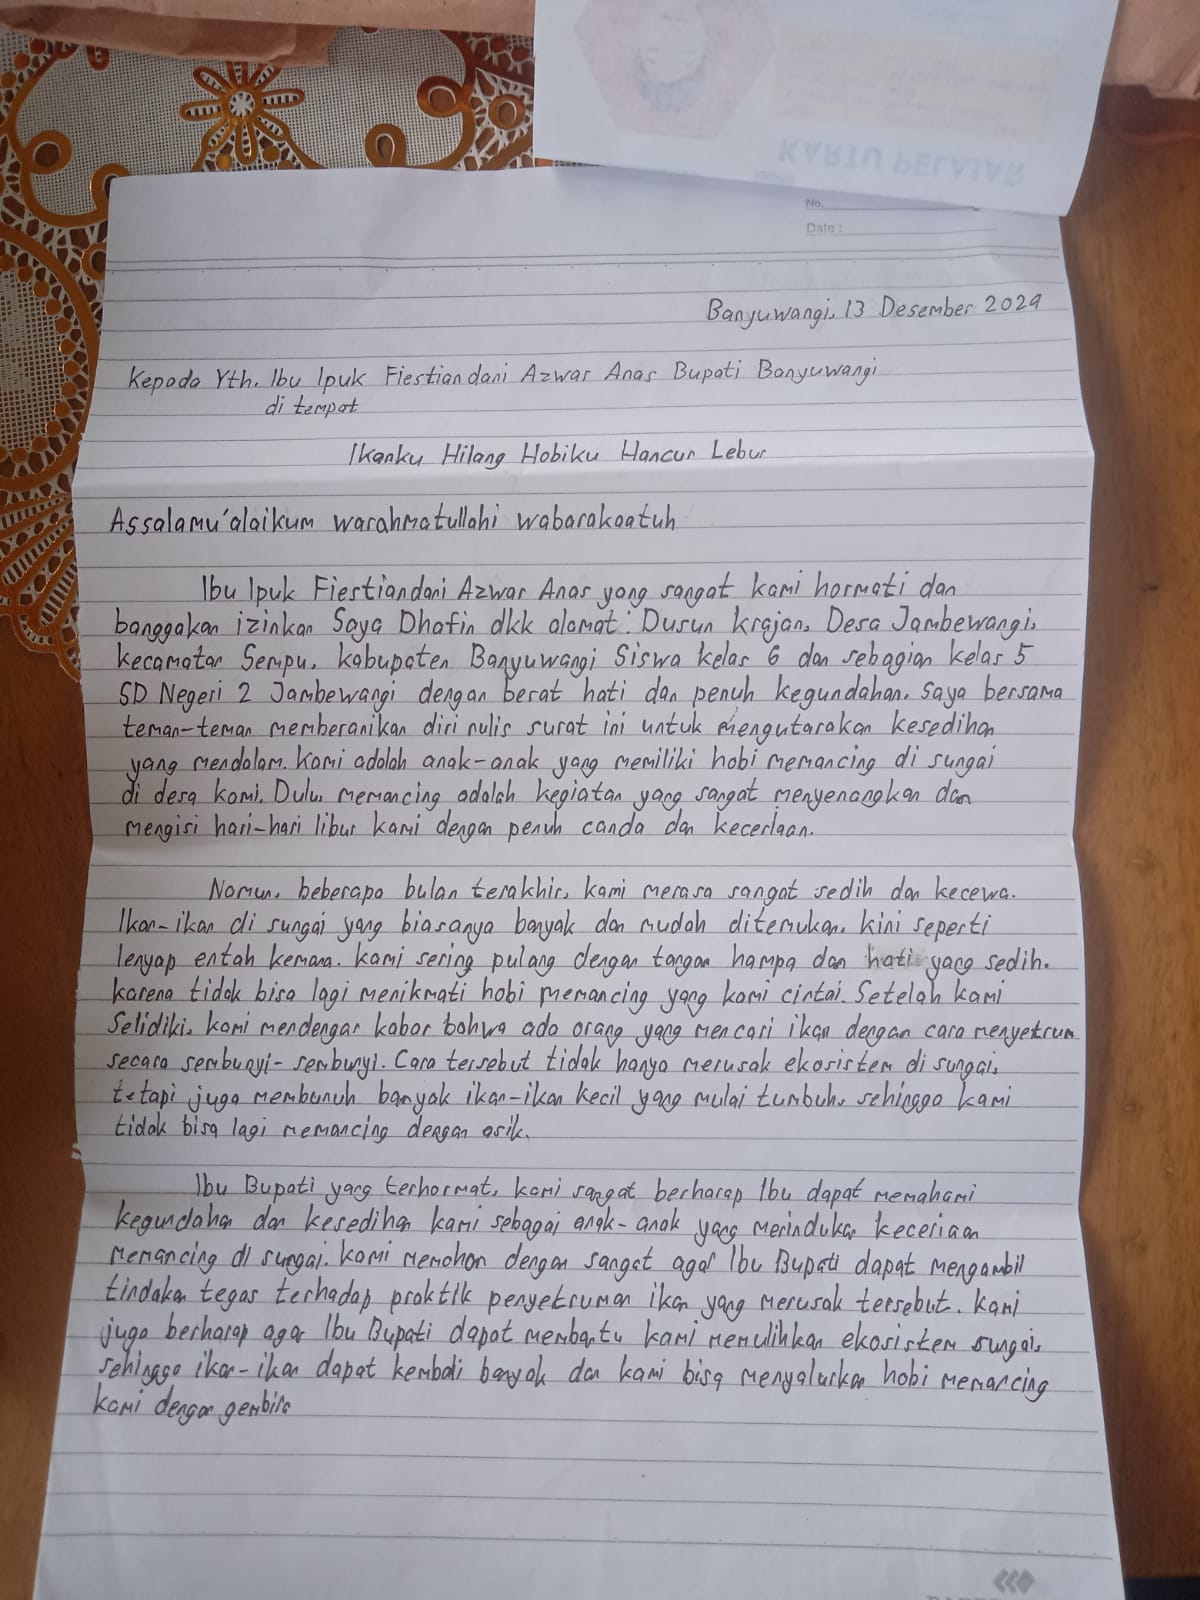 KARTU PELAJAR
No.
Date :
Banyuwangi, 13 Desember 2024
Kepada Yth. Ibu Ipuk Fiestiandani Azwar Anas Bupati Banyuwangi
di tempat
Ikanku Hilang Hobiku Hancur Lebur
Assalamu'alaikum warahmatullahi wabarakaatuh
Ibu Ipuk Fiestiandani Azwar Anas yang sangat kami hormati dan
banggakan izinkan Saya Dhafin dkk alamat : Dusun krajan, Desa Jambewangi,
kecamatan Sempu, kabupaten Banyuwangi Siswa kelas 6 dan sebagian kelas 5
SD Negeri 2 Jambewangi dengan berat hati dan penuh kegundahan. Saya bersama
teman-teman memberanikan diri nulis surat ini untuk mengutarakan kesedihan
yang mendalam. Kami adalah anak-anak yang memiliki hobi memancing di sungai
di desa kami. Dulu, memancing adalah kegiatan yang sangat menyenangkan dan
mengisi hari-hari libur kami dengan penuh canda dan keceriaan.
Namun, beberapa bulan terakhir, kami merasa sangat sedih dan kecewa.
Ikan-ikan di sungai yang biasanya banyak dan mudah ditemukan, kini seperti
lenyap entah kemana. Kami sering pulang dengan tangan hampa dan hati yang sedih.
karena tidak bisa lagi menikmati hobi memancing yang kami cintai. Setelah kami
Selidiki, kami mendengar kabar bahwa ada orang yang mencari ikan dengan cara menyetrum
secara sembunyi-sembunyi. Cara tersebut tidak hanya merusak ekosistem di sungai,
tetapi juga membunuh banyak ikan-ikan kecil yang mulai tumbuh, sehingga kami
tidak bisa lagi memancing dengan asik.
Ibu Bupati yang terhormat, kami sangat berharap Ibu dapat memahami
kegundahan dan kesedihan kami sebagai anak-anak yang merindukan keceriaan
memancing di sungai. Kami memohon dengan sangat agar Ibu Bupati dapat mengambil
tindakan tegas terhadap praktik penyetruman ikan yang merusak tersebut. Kami
juga berharap agar Ibu Bupati dapat membantu kami memulihkan ekosistem sungai,
sehingga ikan-ikan dapat kembali banyak dan kami bisa menyalurkan hobi memancing
kami dengan gembira